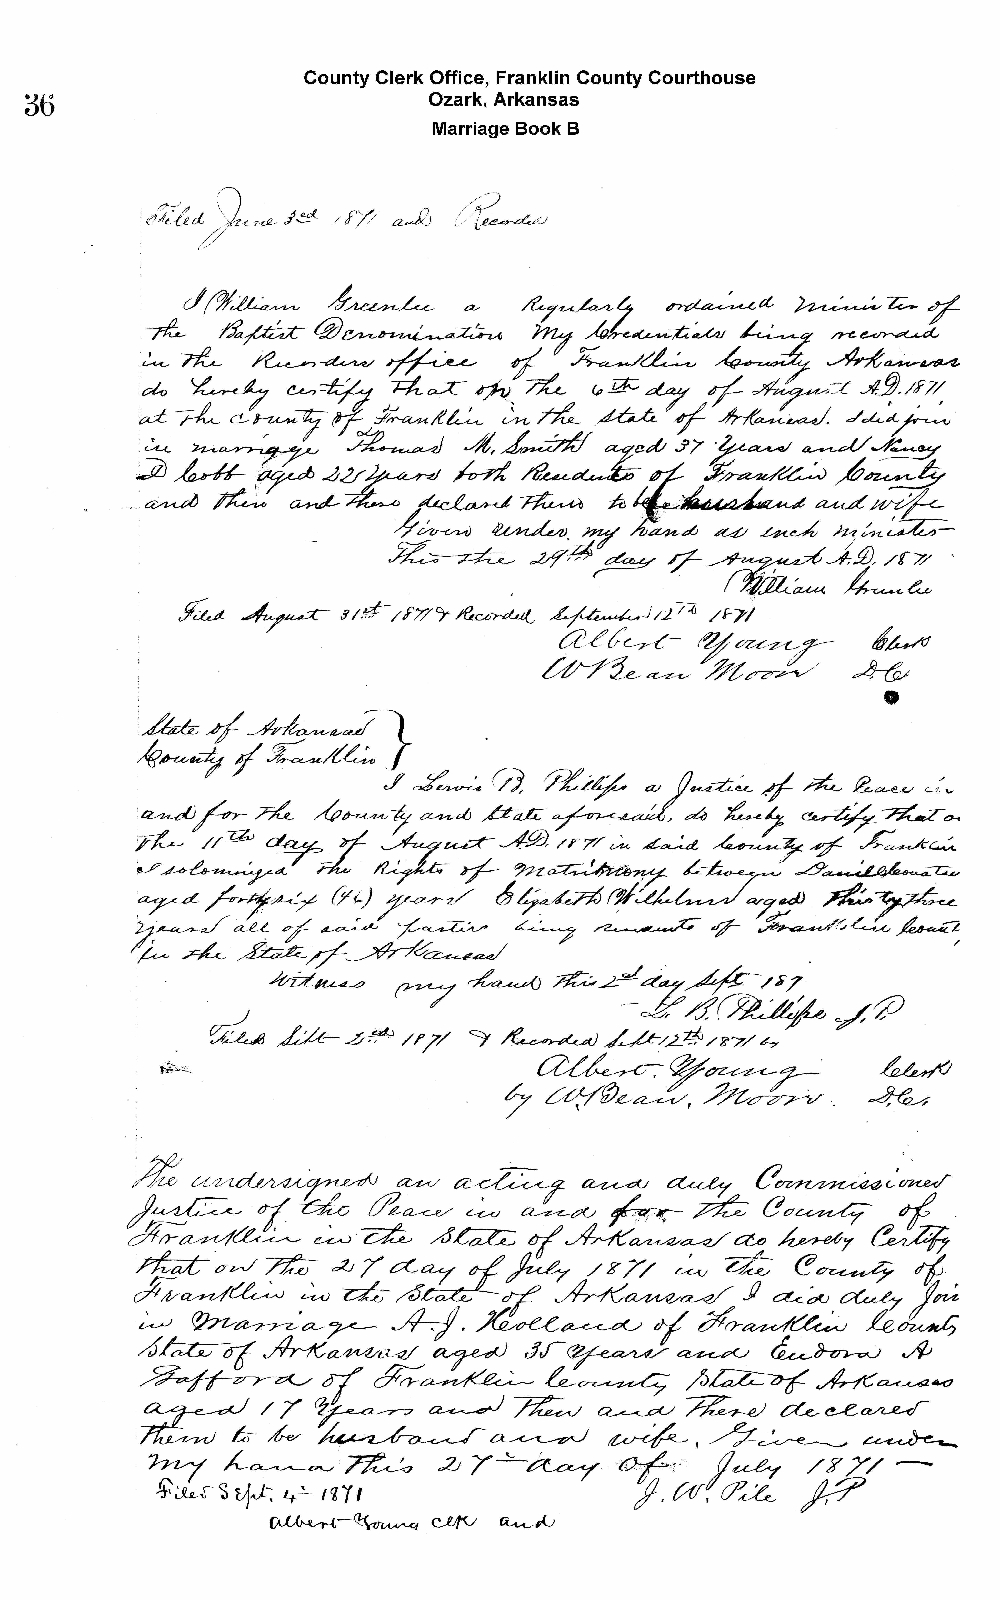 County Clerk Office, Franklin County Courthouse
Ozark, Arkansas
Marriage Book B
36
Filed June 3rd 1871 and Recorded
I William Greenlee a Regularly ordained Minister of
the Baptist Denomination My Credentials being recorded
in the Recorders office of Franklin County Arkansas
do hereby certify that on the 6th day of August A.D. 1871
at the county of Franklin in the State of Arkansas. I did join
in marriage Thomas M. Smith aged 37 Years and Nancy
D Cobb aged 22 Years both Residents of Franklin County
and then and there declared them to be husband and wife
Given under my hand as such minister
This the 29th day of August A.D. 1871
William Greenlee
Filed August 31st 1871 & Recorded September 12th 1871
Albert Young Clerk
W Bean Moore D.C.
State of Arkansas }
County of Franklin }
I Lewis B. Phillips a Justice of the Peace in
and for the County and State aforesaid, do hereby certify that o
the 11th day of August A.D. 1871 in said County of Franklin
I solominized the Rights of Matrimony between Daniel
aged forty six (46) years Elizabeth Wilhelms aged thirty three
years all of said parties being residents of Franklin Count
in the State of Arkansas
Witness my hand this 2d day Sept 187
L. B. Phillips J.P.
Filed Sept 2nd 1871 & Recorded Sept 12th 1871 by
Albert Young Clerk
by W. Bean Moore D.C.
The undersigned an acting and duly Commissioned
Justice of the Peace in and for the County of
Franklin in the State of Arkansas do hereby Certify
that on the 27 day of July 1871 in the County of
Franklin in the State of Arkansas I did duly Join
in Marriage A. J. Holland of Franklin County
State of Arkansas aged 35 Years and Eudora A
Gafford of Franklin County State of Arkansas
aged 17 Years and Then and There declared
them to be husband and wife. Given under
my hand This 27th day of July 1871
J. W. Pile J.P
Filed Sept. 4th 1871
Albert Young clk and